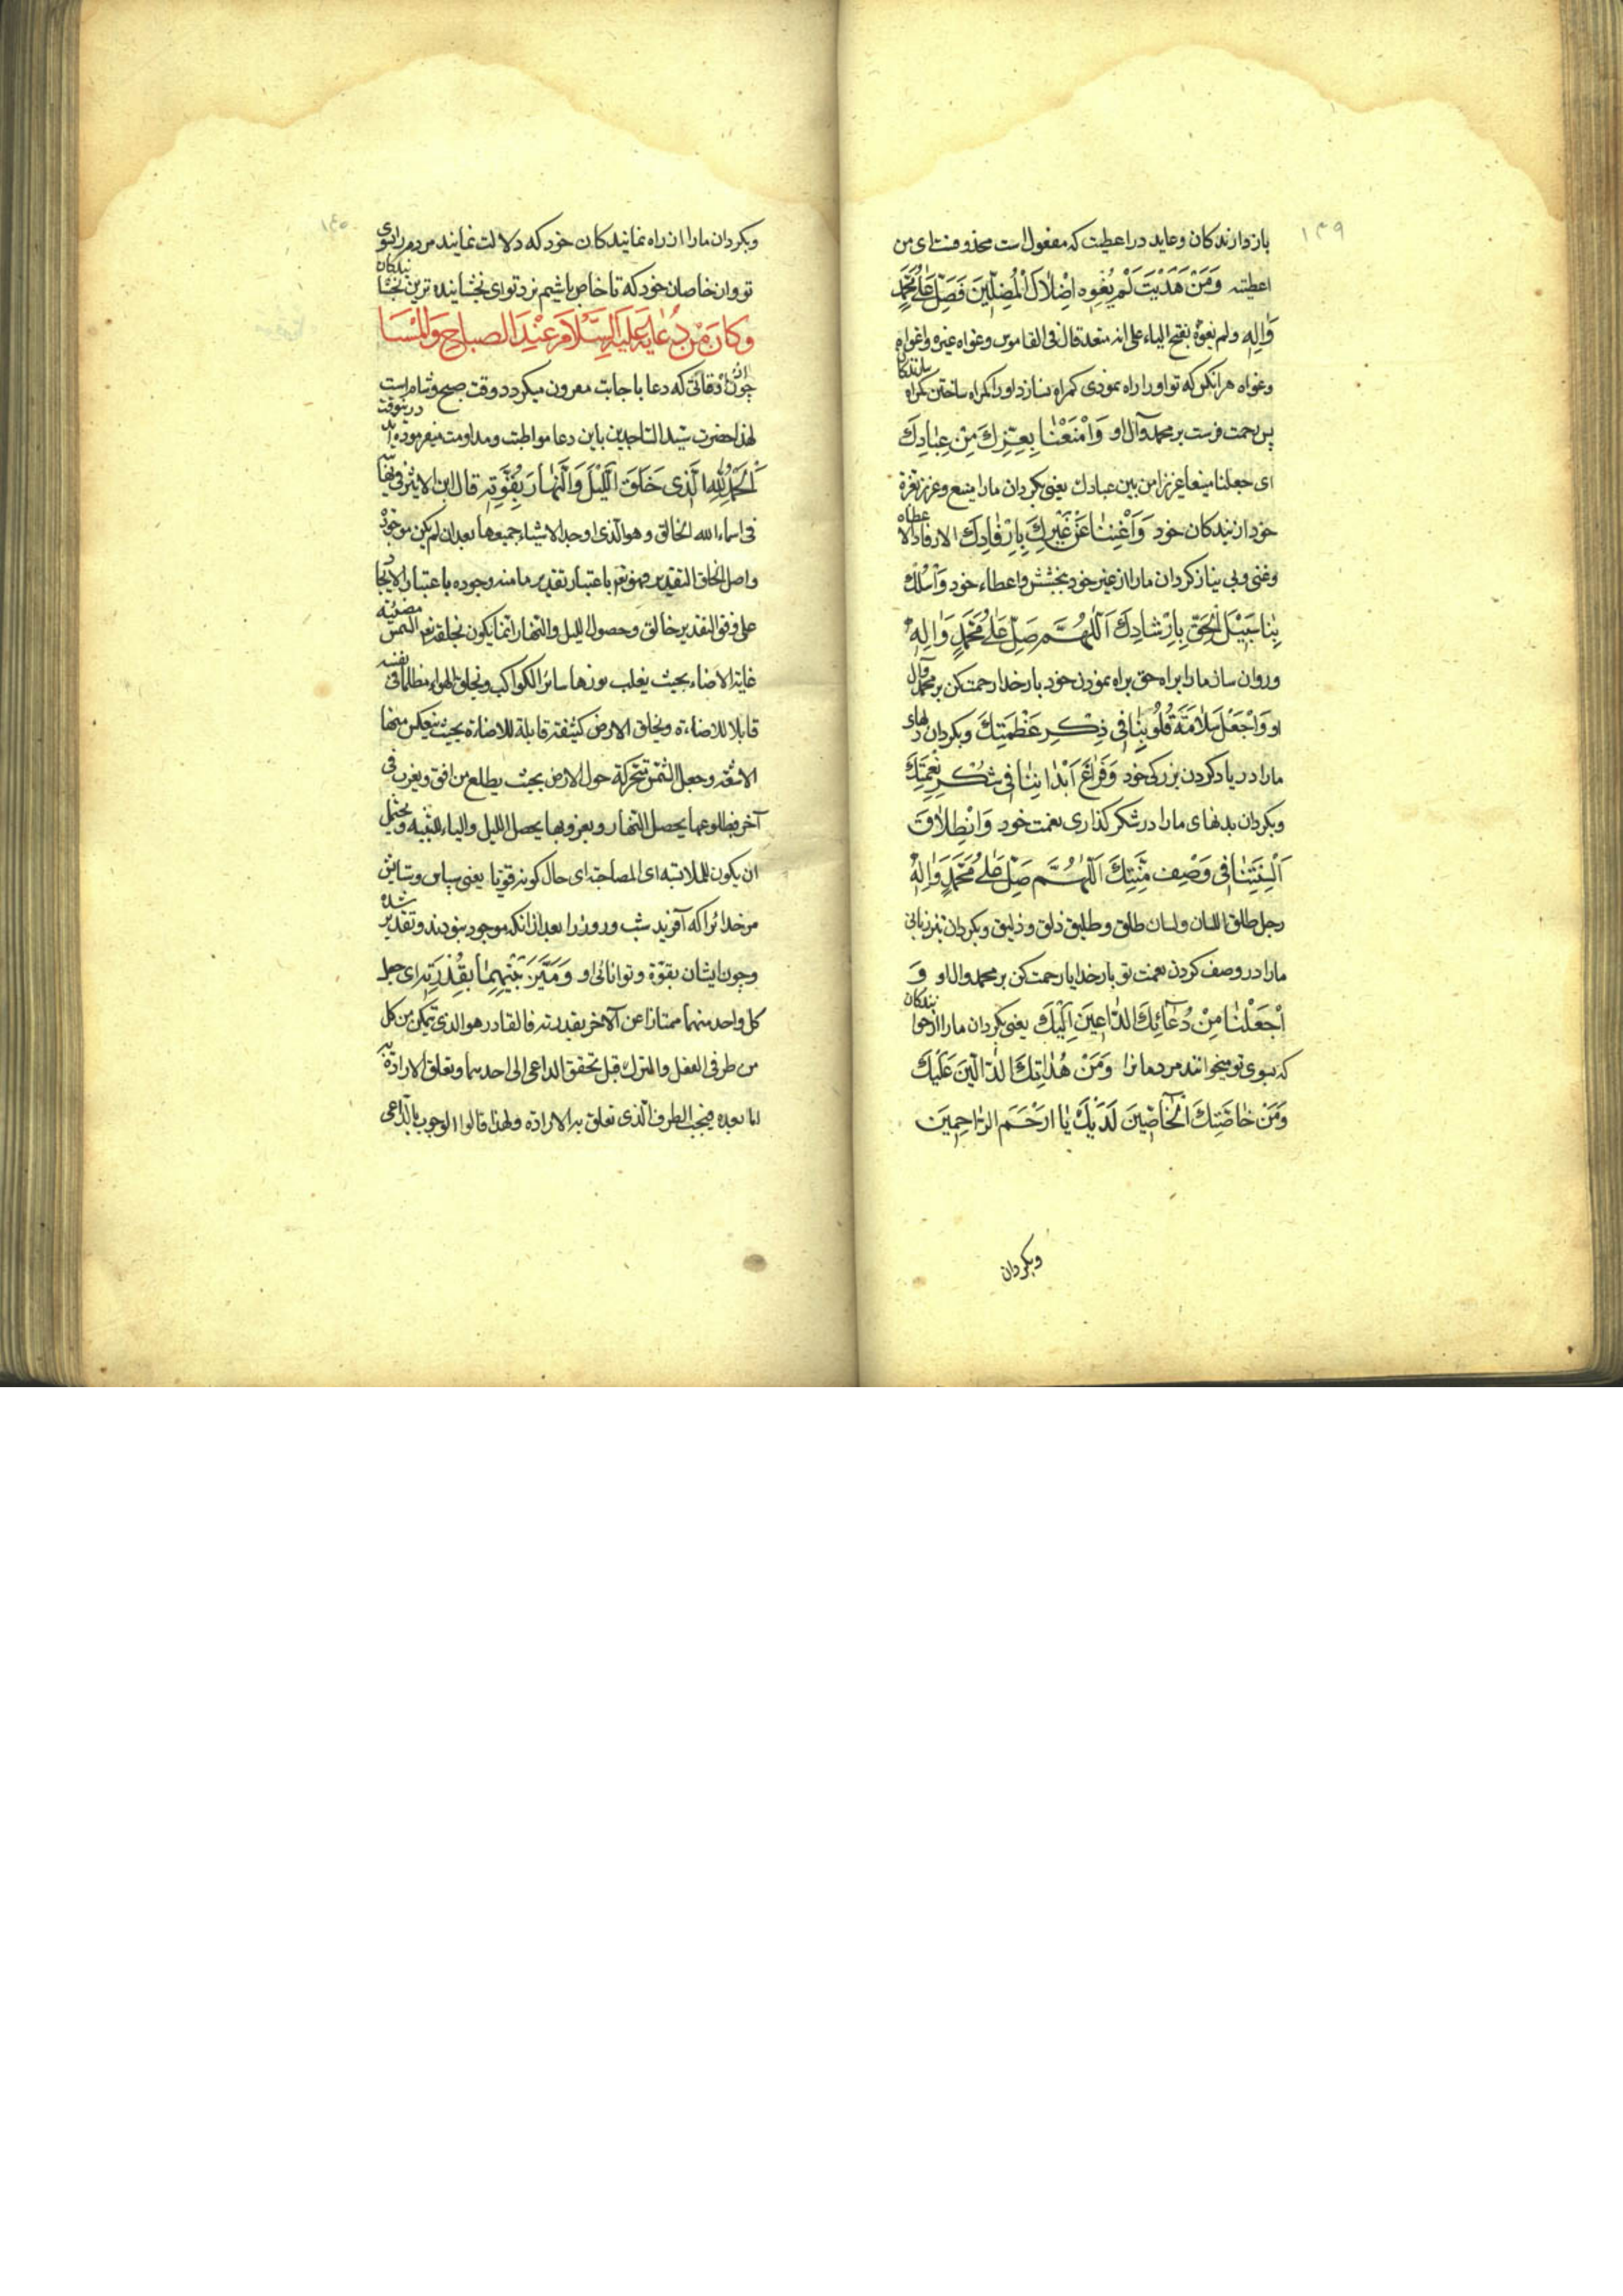 ۱۳۹
باز دارندکان و عاید در اعطیت که مفعول است محذوفست ای من
اعطیته وَمَنْ هَدَیْتَ لَمْ یُغْوِهِ اِضْلالُ الْمُضِلّینَ فَصَلِّ عَلی مُحَمَّدٍ
وَالِهِ ولم یغوه بفتح الیاء علی انه متعد قال فی القاموس وغواه غیره واغواه
وغواه هر انکس که تو او را راه نمودی کمراه نسازد او را کمراه ساختن کمراه سازندکان
پس رحمت فرست بر محمد وآل او وَامْنَعْنا بِعِزِّكَ مِنْ عِبادِكَ
ای جعلنا منیعا عزیزا من بین عبادك یعنی بکردان ما را منیع وعزیز بعزة
خود از بندکان خود وَاَغْنِنا عَنْ غَیْرِكَ بِاِرْفادِكَ الارفاد الاعطاء
وغنی وبی نیاز کردان ما را از غیر خود ببخشش واعطاء خود وَاسْلُكْ
بِنا سَبیلَ الْحَقِّ بِاِرْشادِكَ اَللّهُمَّ صَلِّ عَلی مُحَمَّدٍ وَالِهِ
وروان ساز ما را براه حق براه نمودن خود بار خدایا رحمت کن بر محمد وآل
او وَاجْعَلْ سَلامَةَ قُلُوبِنا فی ذِكْرِ عَظَمَتِكَ وبکردان دلهای
ما را در یاد کردن بزرکی خود وَفَراغَ اَبْدانِنا فی شُكْرِ نِعْمَتِكَ
وبکردان بدنهای ما را در شکر کذاری نعمت خود وَانْطِلاقَ
اَلْسِنَتِنا فی وَصْفِ مِنَّتِكَ اَللّهُمَّ صَلِّ عَلی مُحَمَّدٍ وَالِهِ
رجل طلق اللسان ولسان طلق وطلیق ذلق وذلیق وبکردان تیز زبانی
ما را در وصف کردن نعمت تو بار خدایا رحمت کن بر محمد وال او وَ
اجْعَلْنا مِنْ دُعائِكَ الدّاعینَ اِلَیْكَ یعنی بکردان ما را از خوانندکان
که بسوی تو میخوانند مردمانرا وَمِنْ هُداتِكَ الدّالّینَ عَلَیْكَ
وَمِنْ خاصَّتِكَ الْخاصّینَ لَدَیْكَ یا اَرْحَمَ الرّاحِمینَ
وبکردان
۱۴۰
وبکردان ما را از راه نمایندکان خود که دلالت نمایند مردم را بسوی
تو واز خاصان خود که تا خاص باشیم نزد تو ای بخشاینده ترین بخشایندکان
وَكانَ مِنْ دُعائِهِ عَلَیْهِ السَّلامُ عِنْدَ الصَّباحِ وَالْمَسا
چون از اوقاتی که دعا باجابت مقرون میکردد وقت صبح وشام است
لهذا حضرت سید الساجدین باین دعا مواظبت ومداومت میفرموده اند در ینوقت
اَلْحَمْدُ لِلّهِ الَّذی خَلَقَ اللَّیْلَ وَالنَّهارَ بِقُوَّتِهِ قال ابن الاثیر فی نهایته
فی اسماء الله الخالق وهو الذی اوجد الاشیاء جمیعها بعد ان لم یکن موجودة
واصل الخلق التقدیر فهو تعم باعتبار تقدیر ما منه وجوده باعتبار الایجاد
علی وفق التقدیر خالق وحصول اللیل والنهار انما یکون بخلقه تعم الشمس مضیئة
غایة الاضاءة بحیث یغلب نورها سائر الکواکب وبخلق الهواء مظلما فی نفسه
قابلا للاضاءة وبخلق الارض کثیفة قابلة للاضاءة بحیث ینعکس منها
الاشعة وجعل الشمس متحرکة حول الارض بحیث یطلع من افق ویغرب فی
آخر فبطلوعها یحصل النهار وبغروبها یحصل اللیل والباء للسببیة ویحتمل
ان یکون للملابسة ای المصاحبة ای حال کونه قویا یعنی سپاس وستایش
مر خدایرا که آفرید شب وروز را بعد از انکه موجود نبودند وتقدیر شده
وچون ایشان بقوة وتوانائی او وَمَیَّزَ بَیْنَهُما بِقُدْرَتِهِ ای جعل
کل واحد منهما ممتازا عن الآخر بقدرته فالقادر هو الذی یتمکن من کل
من طرفی الفعل والترك قبل تحقق الداعی الی احدهما وتعلق الارادة به
اما بعده فیجب الطرف الذی تعلق به الارادة ولهذا قالوا الوجوب بالداعی